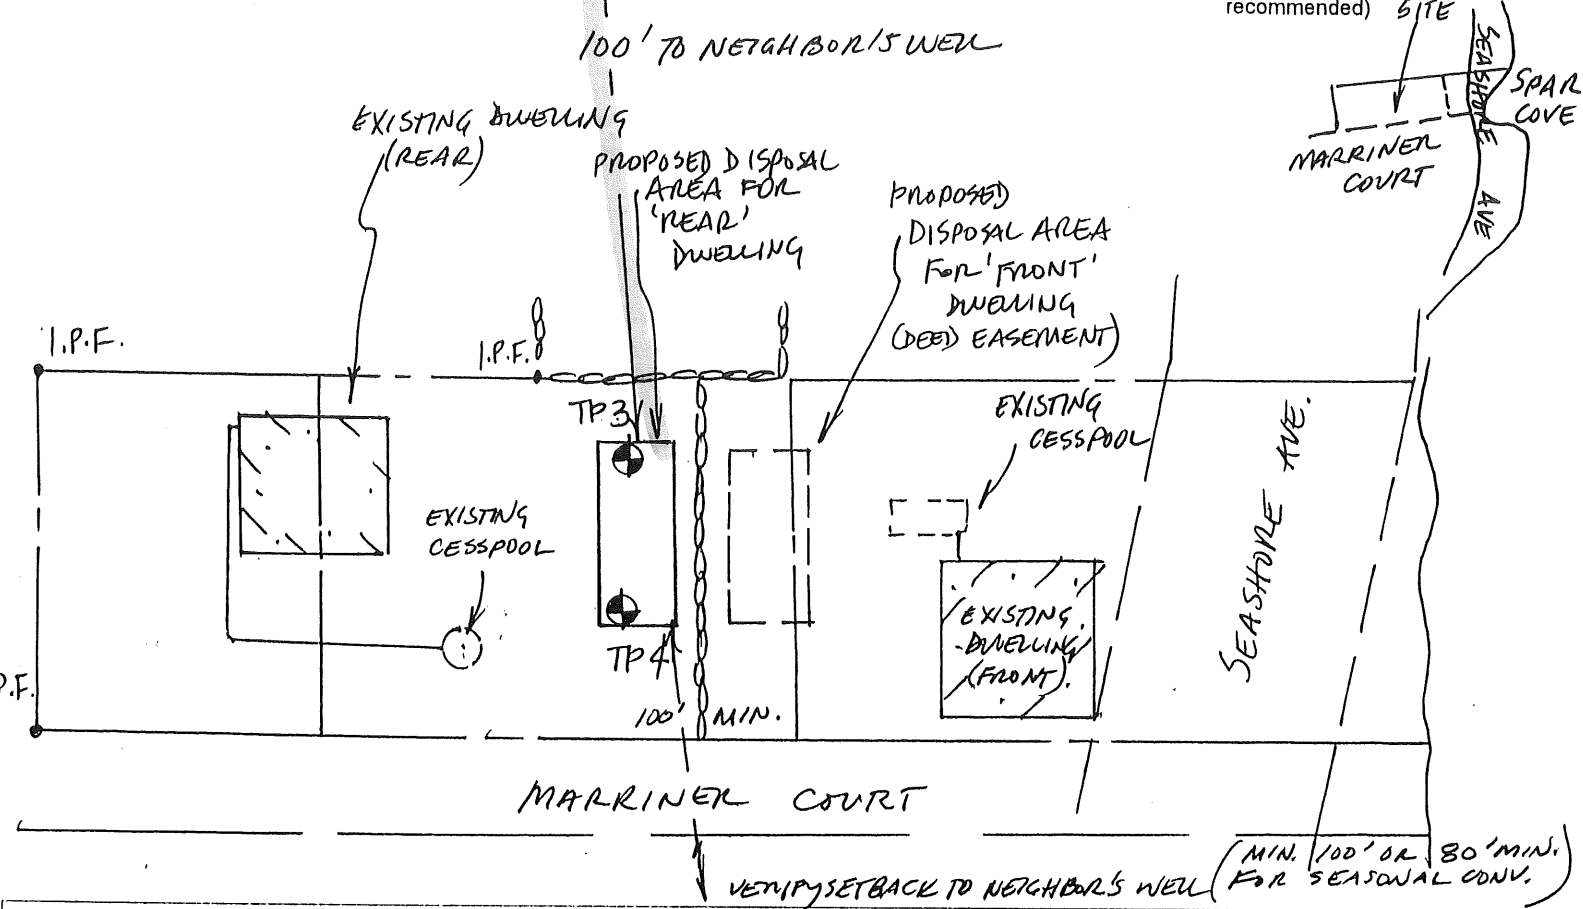 recommended)
SITE
SEASHORE AVE
SPAR
COVE
MARRINER
COURT
100' TO NEIGHBOR'S WELL
EXISTING DWELLING
(REAR)
PROPOSED DISPOSAL
AREA FOR
'REAR'
DWELLING
PROPOSED
DISPOSAL AREA
FOR 'FRONT'
DWELLING
(DEED EASEMENT)
I.P.F.
I.P.F.
TP3
EXISTING
CESSPOOL
EXISTING
CESSPOOL
SEASHORE AVE.
EXISTING
DWELLING
(FRONT).
TP4
P.F.
100' MIN.
MARRINER COURT
VERIFY SETBACK TO NEIGHBOR'S WELL (MIN. 100' OR 80' MIN.
FOR SEASONAL CONV.)